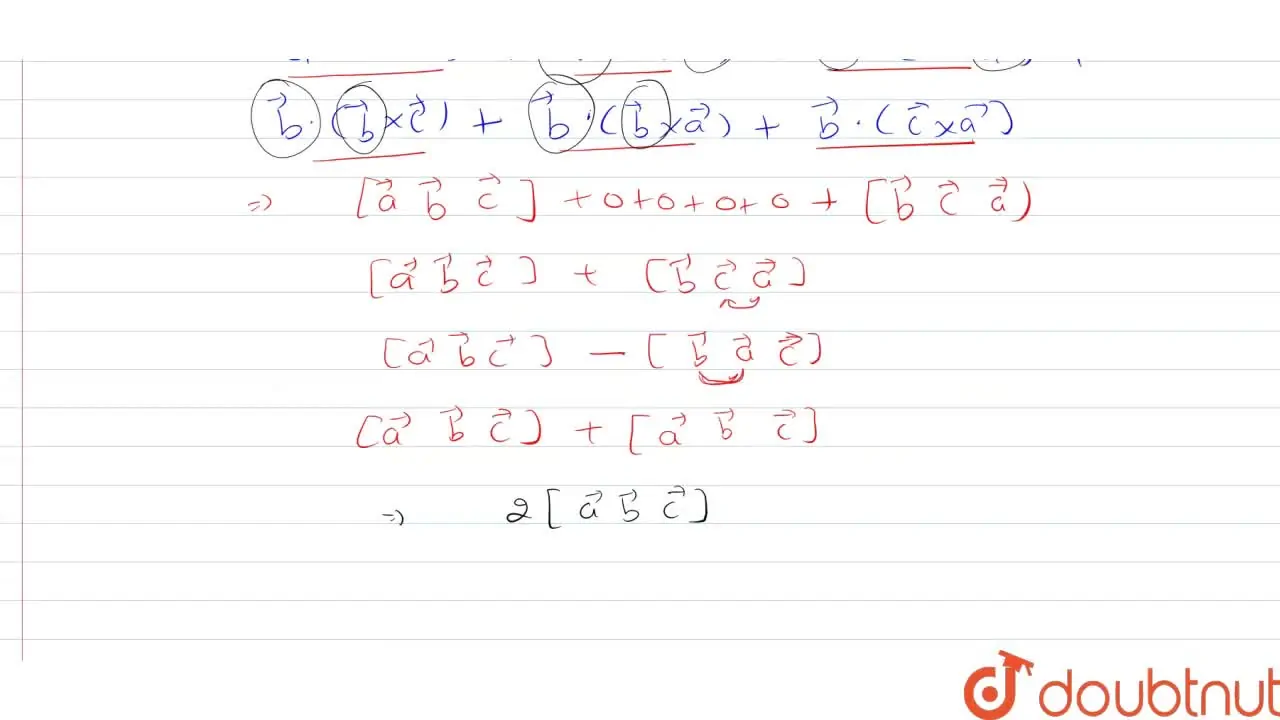 b⃗ · (b⃗ × c⃗) + b⃗ · (b⃗ × a⃗) + b⃗ · (c⃗ × a⃗)
⇒ [a⃗ b⃗ c⃗] + 0 + 0 + 0 + 0 + [b⃗ c⃗ a⃗)
[a⃗ b⃗ c⃗] + [b⃗ c⃗ a⃗]
[a⃗ b⃗ c⃗] − [b⃗ a⃗ c⃗]
[a⃗ b⃗ c⃗] + [a⃗ b⃗ c⃗]
⇒ 2[a⃗ b⃗ c⃗]
doubtnut